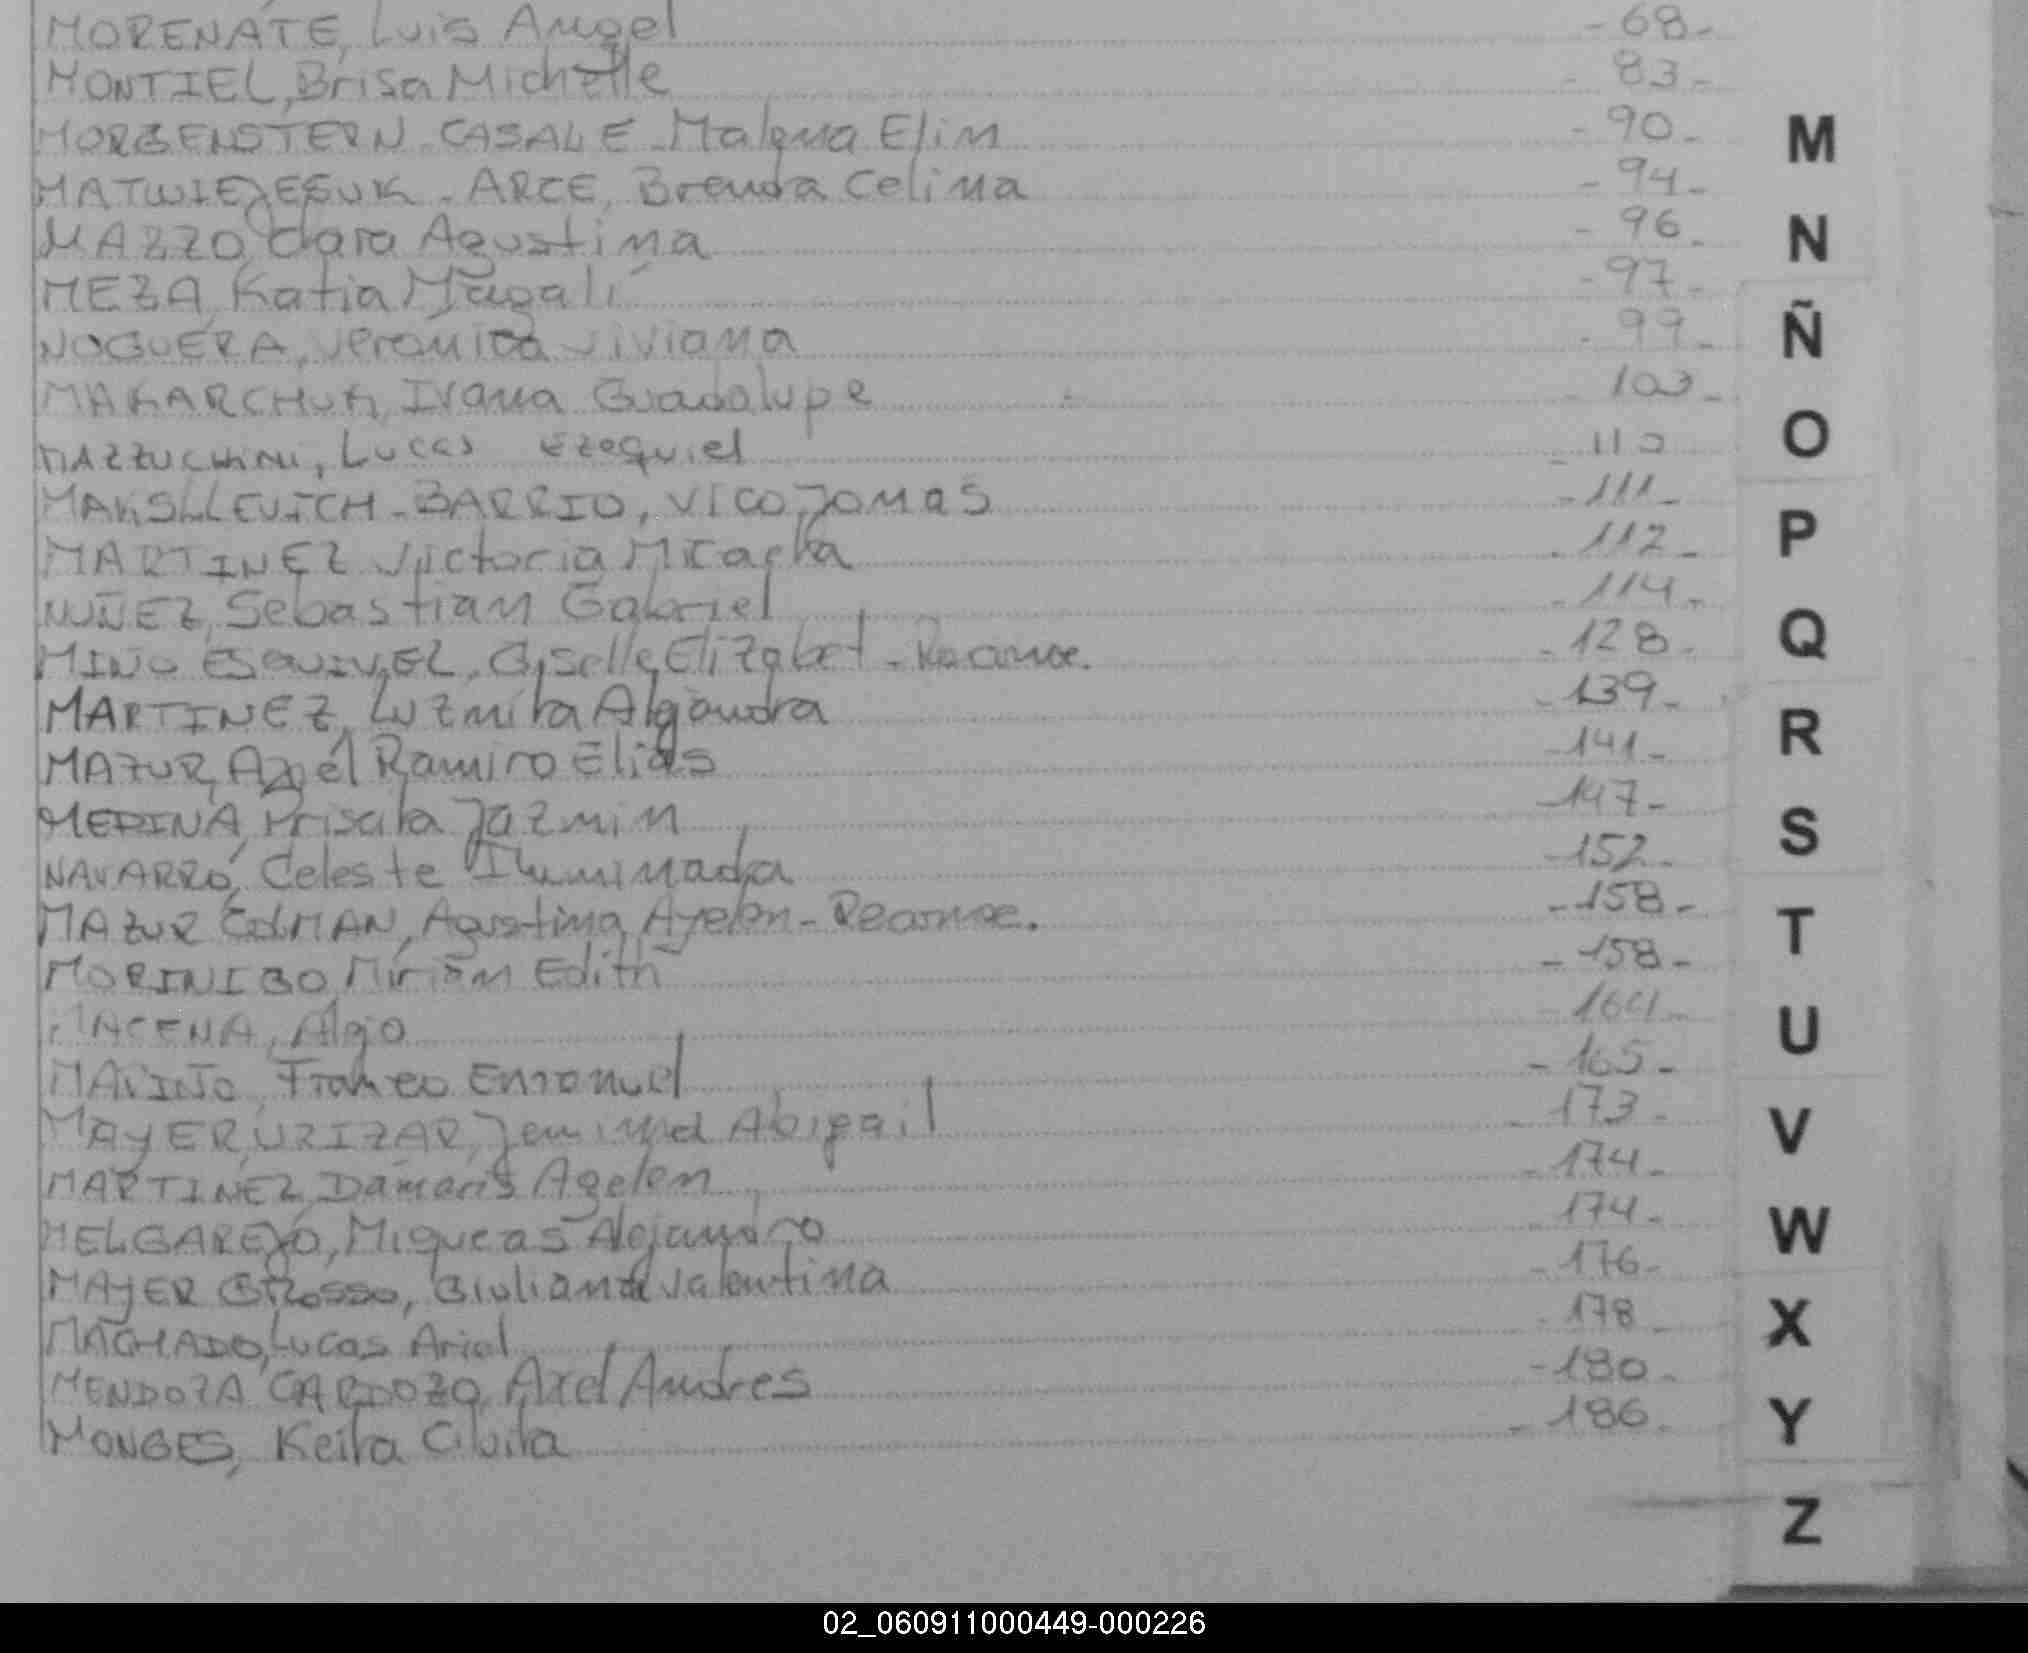 MORENATE, Luis Angel - 68 -
MONTIEL, Brisa Michelle - 83 -
MORGENSTERN - CASALE - Malena Elim - 90 -
MATWIEJESUK - ARCE, Brenda Celina - 94 -
MAZZO, Clara Agustina - 96 -
MEZA, Katia Magalí - 97 -
NOGUERA, Verónica Viviana - 99 -
MAKARCHUK, Ivana Guadalupe - 103 -
MAZZUCHINI, Lucas Ezequiel - 110
MAKSLLEVICH - BARRIO, VICO, - 111 -
MARTINEZ Victoria Micaela - 112 -
NUÑEZ, Sebastian Gabriel - 114 -
MINO ESQUIVEL, Giselle Elizabet - - 128 -
MARTINEZ, Luzmila Alejandra - 139 -
MAZUR, Ramiro Elias - 141 -
MEDINA, Priscila Jazmin - 147 -
NAVARRO, Celeste Iluminada - 152 -
MAZUR COLMAN, Agustina Ayelen - - 158 -
MORINIGO Miriam Edith - 158 -
MACENA, Alejo - 164 -
MARIÑO, Franco Emanuel - 165 -
MAYER URIZAR, Jemima Abigail - 173 -
MARTINEZ Damaris Ayelen - 174 -
MELGAREJO, Miqueas Alejandro - 174 -
MAYER GROSSO, Giuliana Valentina - 176 -
MACHADO, Lucas Ariel - 178 -
MENDOZA CARDOZO, Axel Andres - 180 -
MONGES, Keila - 186 -
M
N
Ñ
O
P
Q
R
S
T
U
V
W
X
Y
Z
02_060911000449-000226